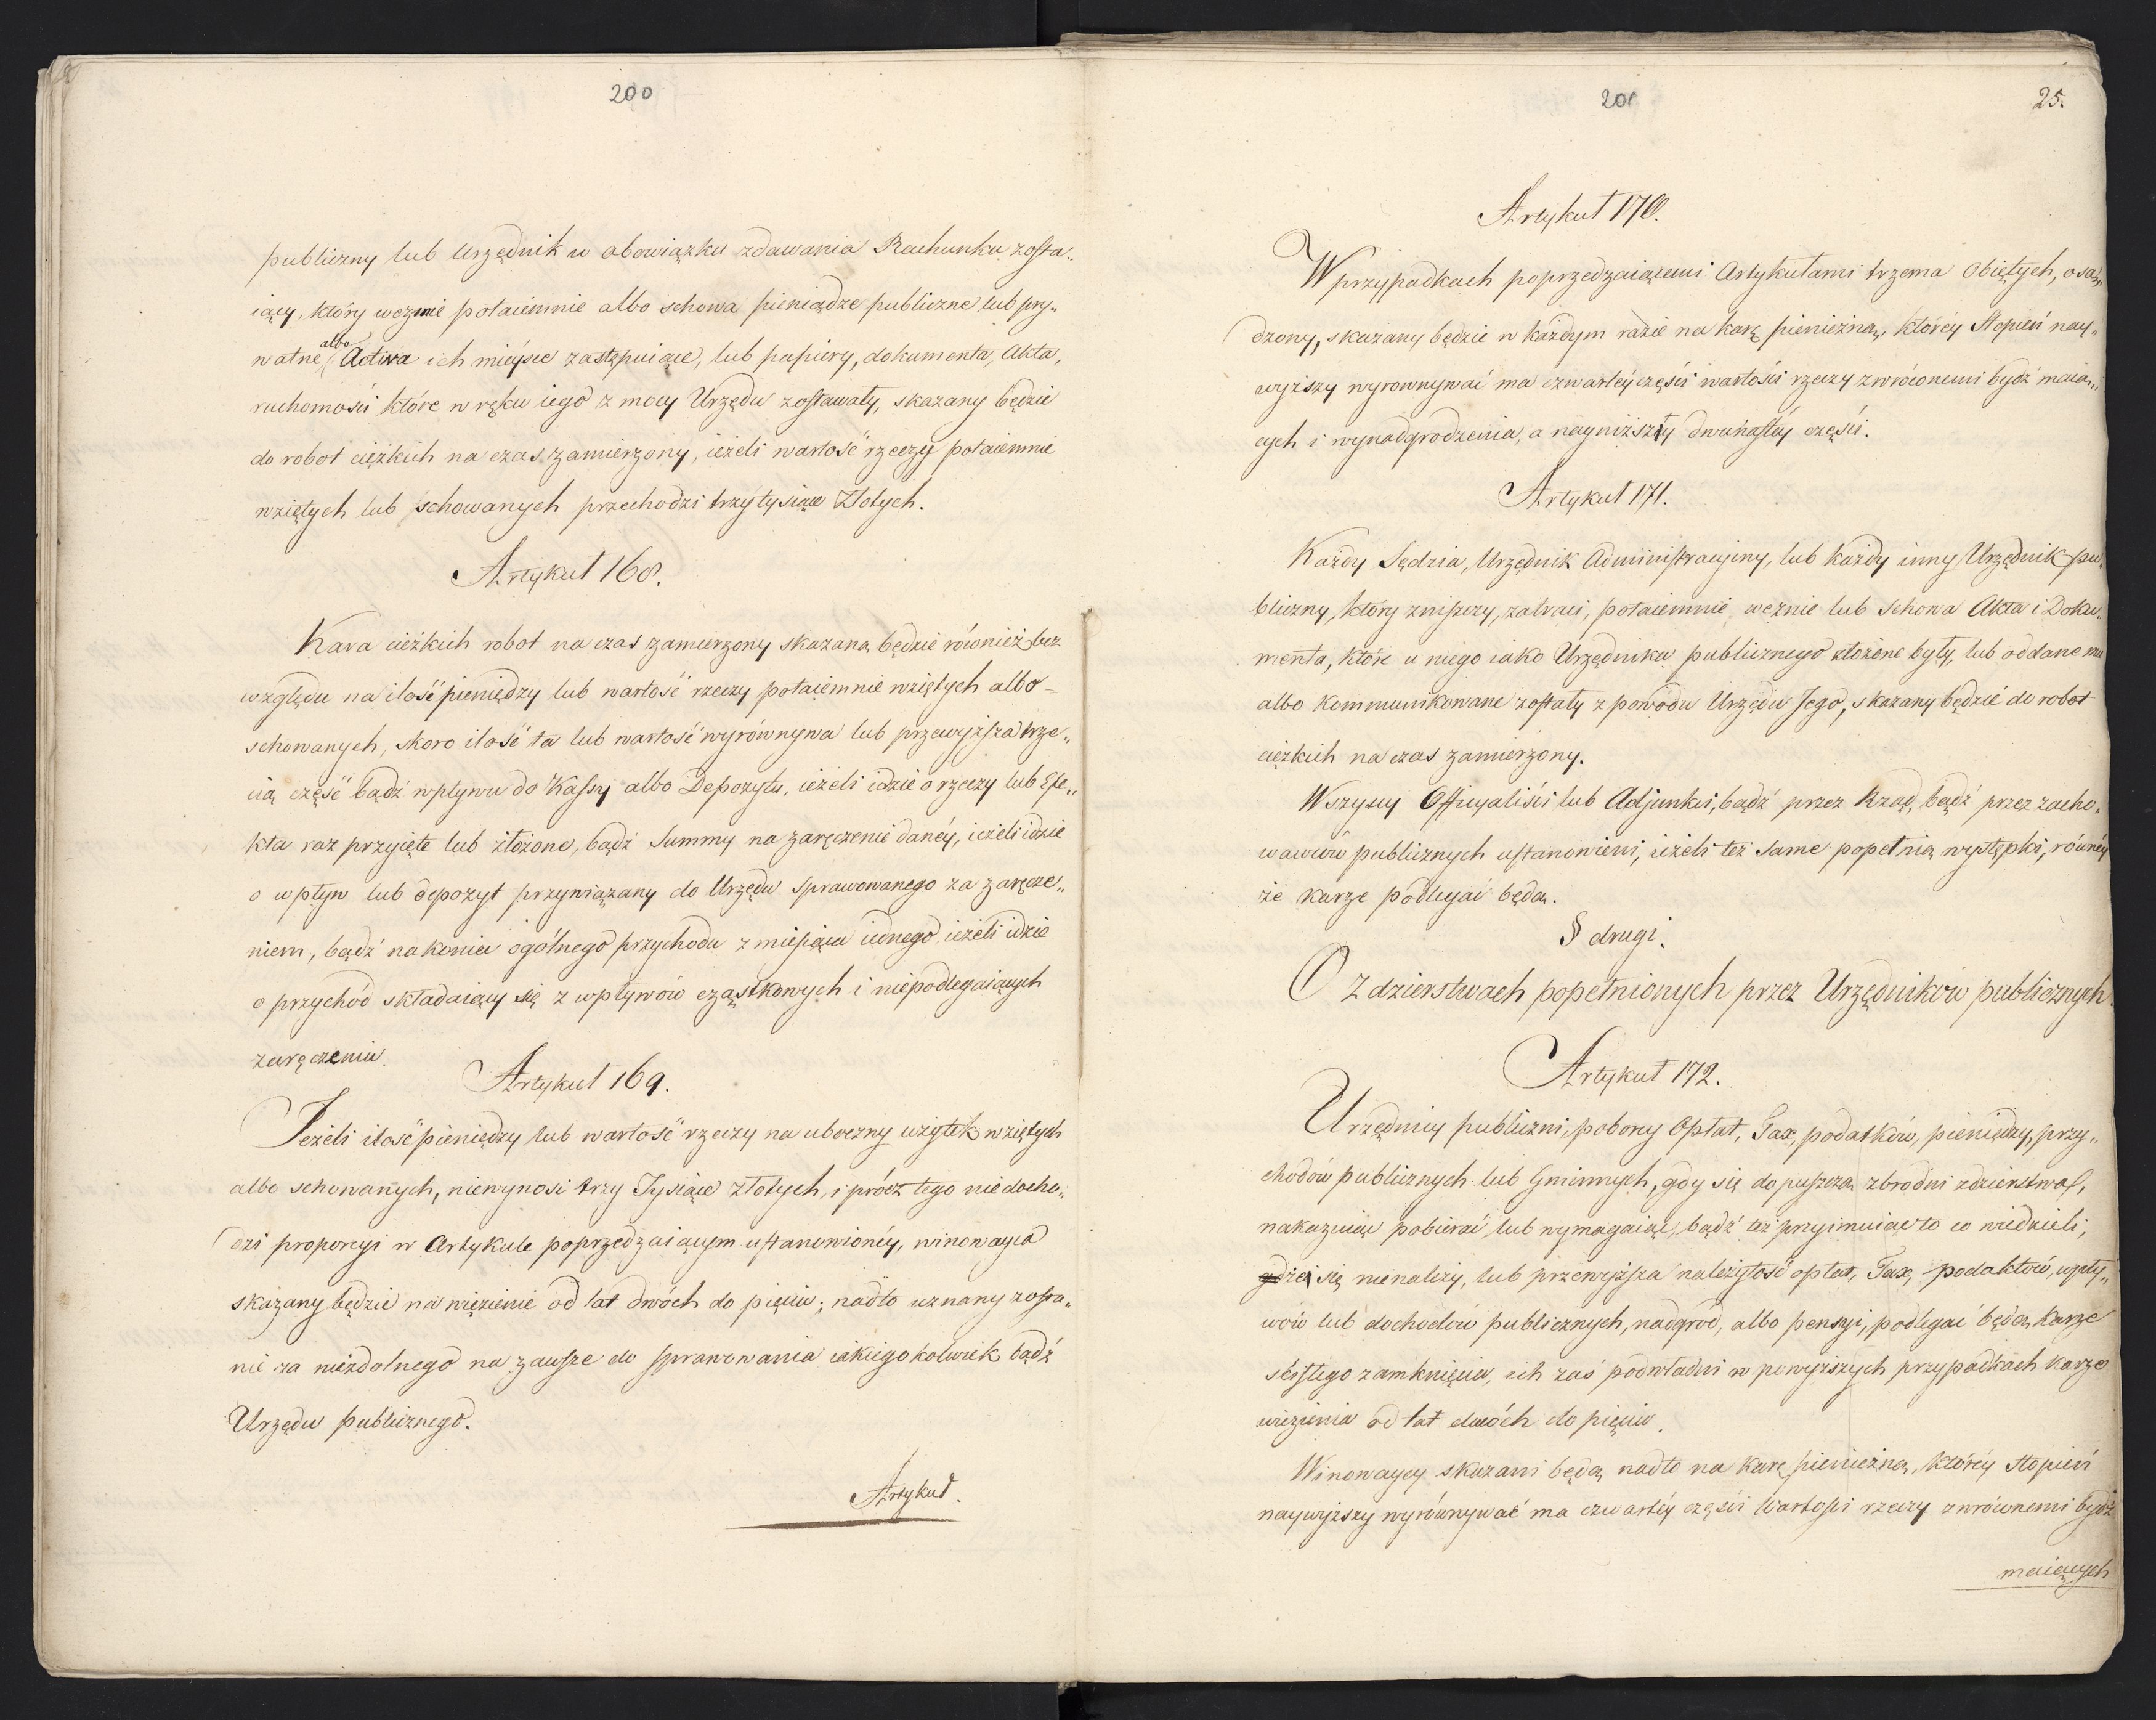 200
publiczny lub Urzędnik w obowiązku zdawania Rachunku zosta„
iący, który wezmie potaiemnie albo schowa pieniądze publiczne lub pry„
albo
watne, Activa ich mieysce zastępuiące, lub papiery, dokumenta, Akta,
ruchomości które w ręku iego z mocy Urzędu zostawały, skazany będzie
do robot ciężkich na czas zamierzony, ieżeli wartość rzeczy potaiemnie
wziętych lub schowanych przechodzi trzy tysiące Złotych.
Artykuł 168.
Kara cieżkich robot na czas zamierzony skazaną będzie również bez
względu na ilość pieniędzy lub wartość rzeczy potaiemnie wziętych albo
schowanych, skoro ilość ta lub wartość wyrównywa lub przewyższa trze„
cią część bądź wpływu do Kassy albo Depozytu, ieżeli idzie o rzeczy lub Efe„
kta raz przyięte lub złożone, bądź Summy na zaręczenie danéy, ieżeli idzie
o wpływ lub depozyt przywiązany do Urzędu sprawowanego za zaręcze„
niem, bądź nakoniec ogólnego przychodu z miesiąca iednego ieżeli idzie
o przychód składaiący się z wpływów cząstkowych i niepodlegaiących
zaręczeniu.
Artykuł 169.
Jeżeli ilość pieniędzy lub wartość rzeczy na uboczny użytek wziętych
albo schowanych, niewynosi trzy Tysiące złotych, i prócz tego niedocho„
dzi proporcyi w Artykule poprzedzaiącym ustanowionéy, winowayca
skazany będzie na więzienie od lat dwóch do pięciu; nadto uznany zosta„
nie za niezdolnego na zawsze do sprawowania iakiegokolwiek bądź
Urzędu publicznego.
Artykuł.
201
25.
Artykuł 170.
W przypadkach poprzedzaiącemi Artykułami trzema obiętych, osą„
dzony, skazany będzie w każdym razie na karę pieniężną, któréy Stopień nay„
wyższy wyrownywać ma czwartéy części wartości rzeczy zwróconemi bydź maią„
cych i wynadgrodzenia, a nayniższy dwunastéy części.
Artykuł 171.
Każdy Sędzia, Urzędnik Administracyiny, lub każdy inny Urzędnik pu„
bliczny, który zniszczy, zatraci, potaiemnie weznie lub schowa Akta i Doku„
menta, które u niego iako Urzędnika publicznego złożone były, lub oddane mu
albo kommunikowane zostały z powodu Urzędu Jego, skazany będzie do robot
ciężkich na czas zamierzony.
Wszyscy Officyaliści lub Adjunkci, bądź przez Rząd, bądź przez zacho„
wawców publicznych ustanowieni, ieżeli też same popełnią występki, równéy
że karze podlegać będą.
§ drugi.
O Zdzierstwach popełnionych przez Urzędników publicznych.
Artykuł 172.
Urzędnicy publiczni, poborcy Opłat, Tax, podatków, pieniędzy, przy„
chodów publicznych lub Gminnych, gdy się dopuszczą zbrodni zdzierstwa,
nakazuiąc pobierać lub wymagaiąc, bądź też przyimuiąc to co wiedzieli,
że się nienależy, lub przewyższa należytość opłat, Tax, podatków, wpły„
wów lub dochodów publicznych, nadgród, albo pensyi, podlegać będą karze
ścisłego zamknięcia, ich zaś podwładni w powyższych przypadkach karze
więzienia od lat dwóch do pięciu.
Winowaycy skazani będą nadto na karę pieniężną, któréy stopień
naywyższy wyrównywać ma czwartéy części wartości rzeczy zwróconemi bydź
maiących